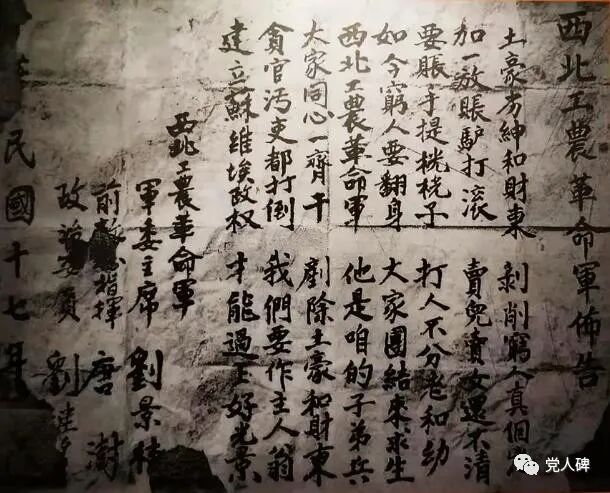 西北工農革命軍佈告
土豪劣紳和財東 剝削窮人真個
加一放賬驢打滚 賣兒賣女還不清
要賬手提桄桄子 打人不分老和幼
如今窮人要翻身 大家團結來求生
西北工農革命軍 他是咱的子弟兵
大家同心一齊干 剷除土豪和財東
貪官汚吏都打倒 我們要作主人翁
建立蘇維埃政权 才能過上好光景
西北工農革命軍
軍委主席 劉景桂
前 指揮 唐澍
政治 員 劉
民國十七年
党人碑